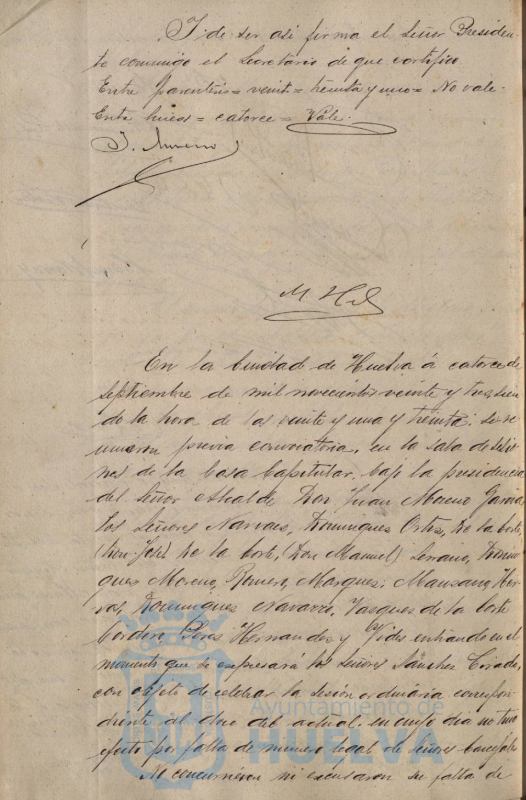 Y de ser asi firma el Señor Presiden-
te conmigo el Secretario de que certifico.
Entre parentesis = veinti = treinta y uno = No vale.
Entre lineas = catorce = Vale.
J. Moreno
M. H
En la Ciudad de Huelva á catorce de
septiembre de mil novecientos veinte y tres, sien
do la hora de las veinte y una y treinta; se re
unieron previa convocatoria, en la sala de sesio
nes de la Casa Capitular, bajo la presidencia
del Señor Alcalde Don Juan Moreno Garcia,
los Señores Narvaes, Dominguez Ortiz, De la Corte,
(Don José) De la Corte, (Don Manuel) Serrano, Domin
guez Moreno, Romero, Marquez, Manzano,
Dominguez Navarro, Vasquez de la Corte
Cordero, Perez Hernandez y Vides entrando en el
momento que se expresará los señores Sanchez
con objeto de celebrar la sesión ordinaria correspon
diente al doce del actual, en cuyo dia no tuvo
efecto por falta de número legal de señores Concejales
No concurrieron ni excusaron su falta de
Ayuntamiento de
HUELVA